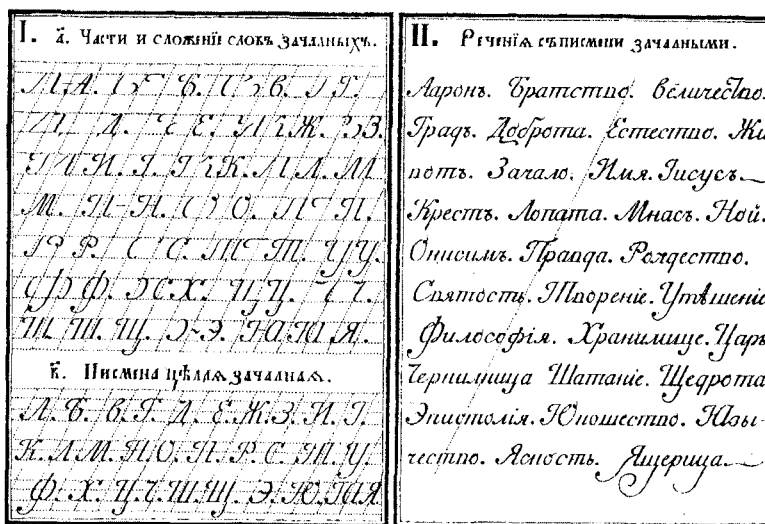 I. а҃. Части и сложенїе словъ зачалныхъ.
А. Б. В. Г.
Д. Е. Ж. З.
И. І. К. Л. М
М. Н. О. П.
Р. С. Т. У.
Ф. Х. Ц. Ч.
Ш. Щ. Э. Ю. Я.
в҃. Писмена цѣлая зачалная.
А. Б. В. Г. Д. Е. Ж. З. И. І.
К. Л. М. Н. О. П. Р. С. Т. У.
Ф. Х. Ц. Ч. Ш. Щ. Э. Ю. Я
II. Реченїя съ писмени зачалными.
Ааронъ. Братство. Величество.
Градъ. Доброта. Естество. Жи
вотъ. Зачало. Имя. Іисусъ.
Крестъ. Лопата. Мнасъ. Ной.
Онисимъ. Правда. Рождество.
Святость. Твореніе. Утѣшеніе
Философія. Хранилище. Царь
Чернилница Шатаніе. Щедрота
Эпистолія. Юношество. Языı-
чество. Ясность. Ящерица.